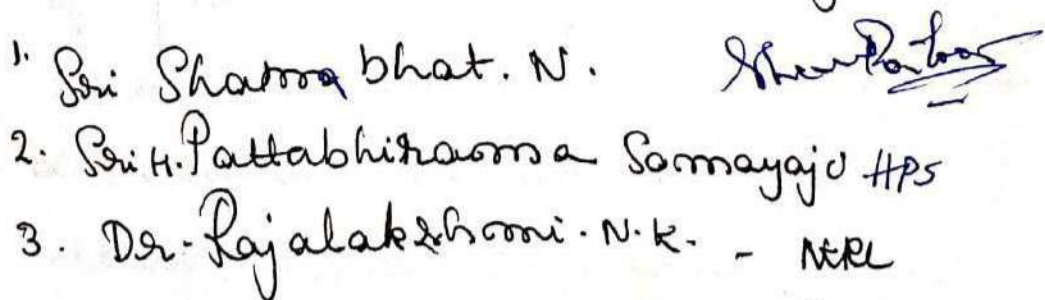 1. Sri Shama bhat. N.
2. Sri H. Pattabhirama Somayaji HPS
3. Dr. Rajalakshmi. N. K. -